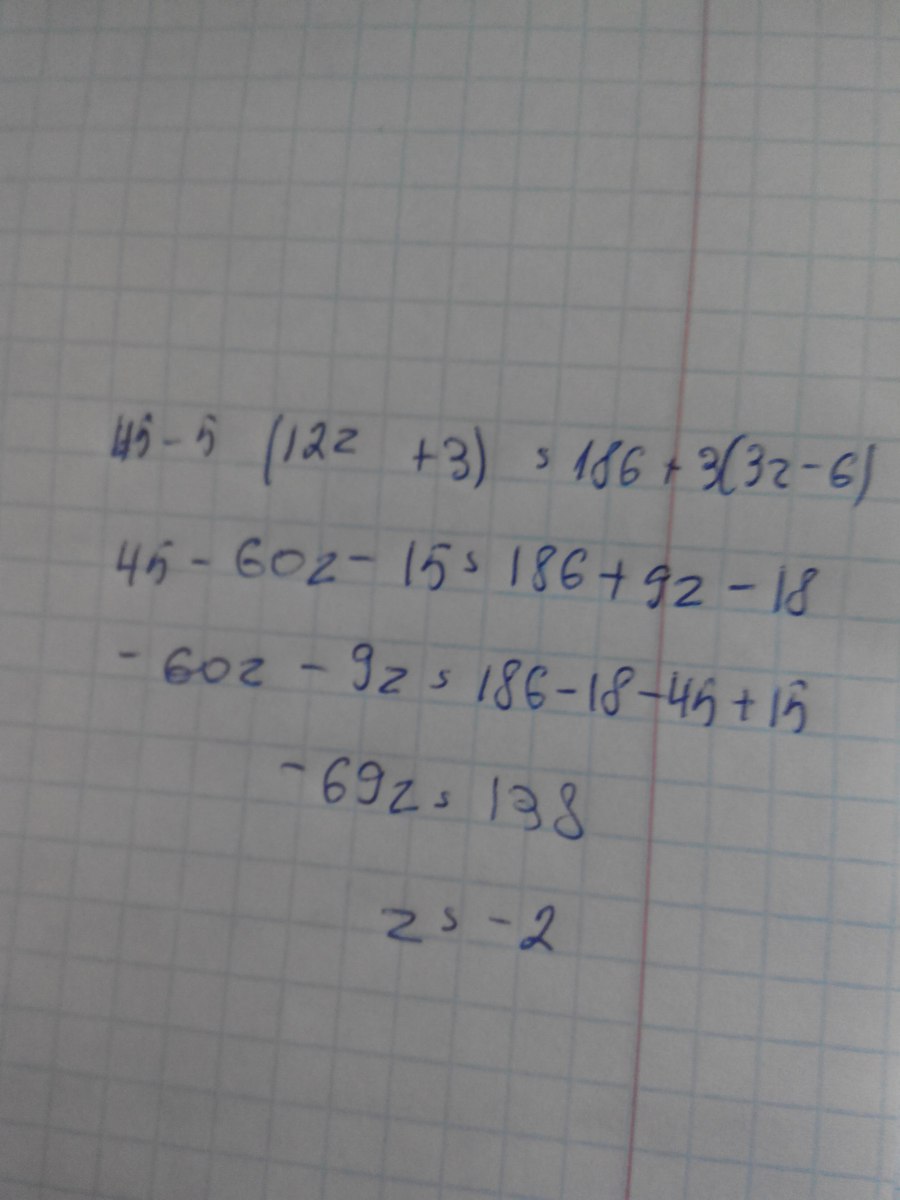 45-5 (12z +3) = 186 + 3(3z-6)
45 - 60z - 15 = 186 + 9z - 18
- 60z - 9z = 186-18-45+15
-69z = 138
z = -2